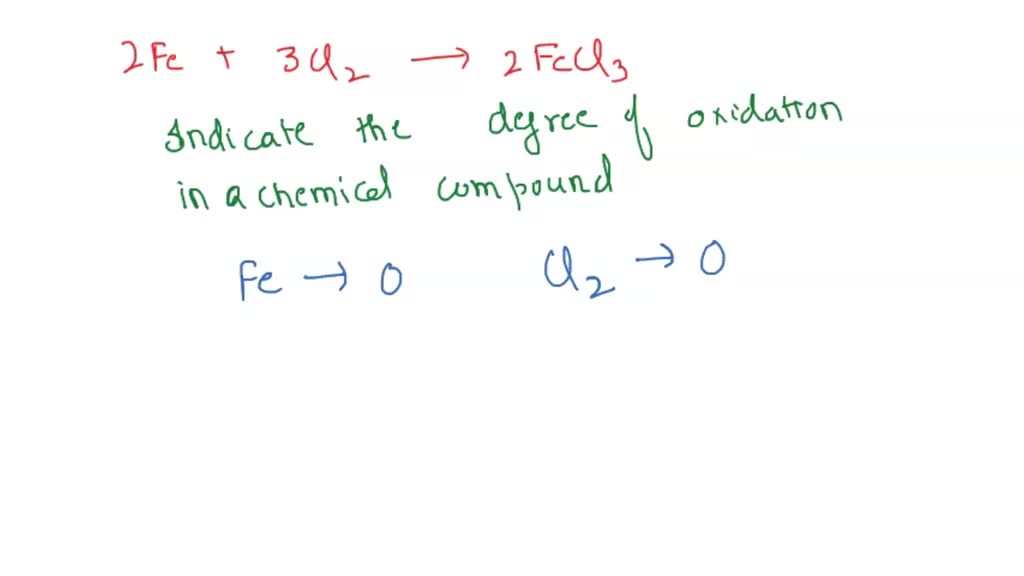 2Fe + 3Cl2 → 2FeCl3
Indicate the degree of oxidation
in a chemical compound
Fe → 0 Cl2 → 0